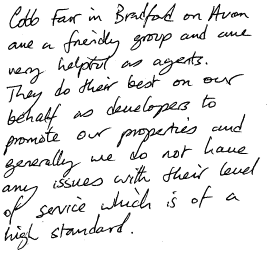 Cobb Farr in Bradford on Avon
are a friendly group and are
very helpful as agents.
They do their best on our
behalf as developers to
promote our properties and
generally we do not have
any issues with their level
of service which is of a
high standard.